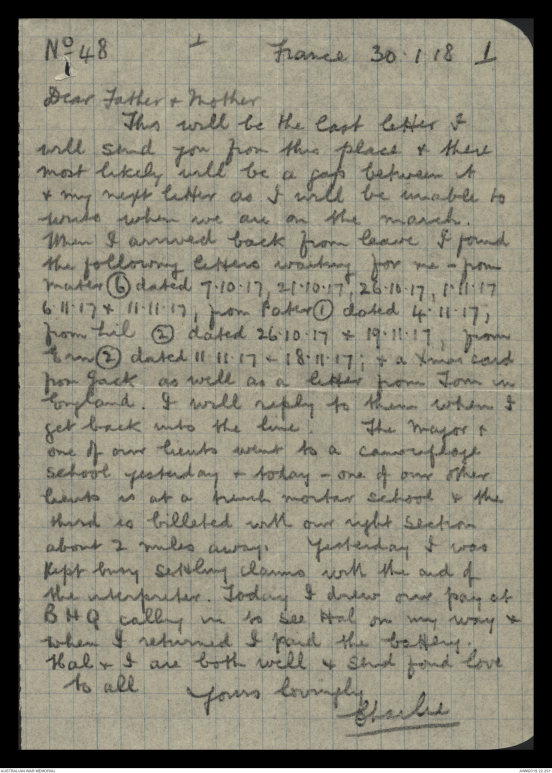 No 48 1 France 30.1.18 1
1
Dear Father & Mother
This will be the last letter I
will send you from this place & there
most likely will be a gap between it
& my next letter as I will be unable to
write when we are on the march.
When I arrived back from leave I found
the following letters waiting for me - from
Mater (6) dated 7.10.17, 21.10.17, 26.10.17, 1.11.17
6.11.17 & 11.11.17, from Pater (1) dated 4.11.17,
from Lil (2) dated 26.10.17 & 19.11.17, from
Ern (2) dated 11.11.17 & 18.11.17; & a Xmas card
from Jack as well as a letter from Tom in
England. I will reply to them when I
get back into the line. The Major &
one of our lieuts went to a camouflage
school yesterday & today - one of our other
lieuts is at a trench mortar school & the
third is billeted with our right section
about 2 miles away. Yesterday I was
kept busy settling claims with the aid of
the interpreter. Today I drew our pay at
BHQ calling in to see Hal on my way &
when I returned I paid the battery.
Hal & I are both well & send fond love
to all Yours lovingly
Charlie
AUSTRALIAN WAR MEMORIAL